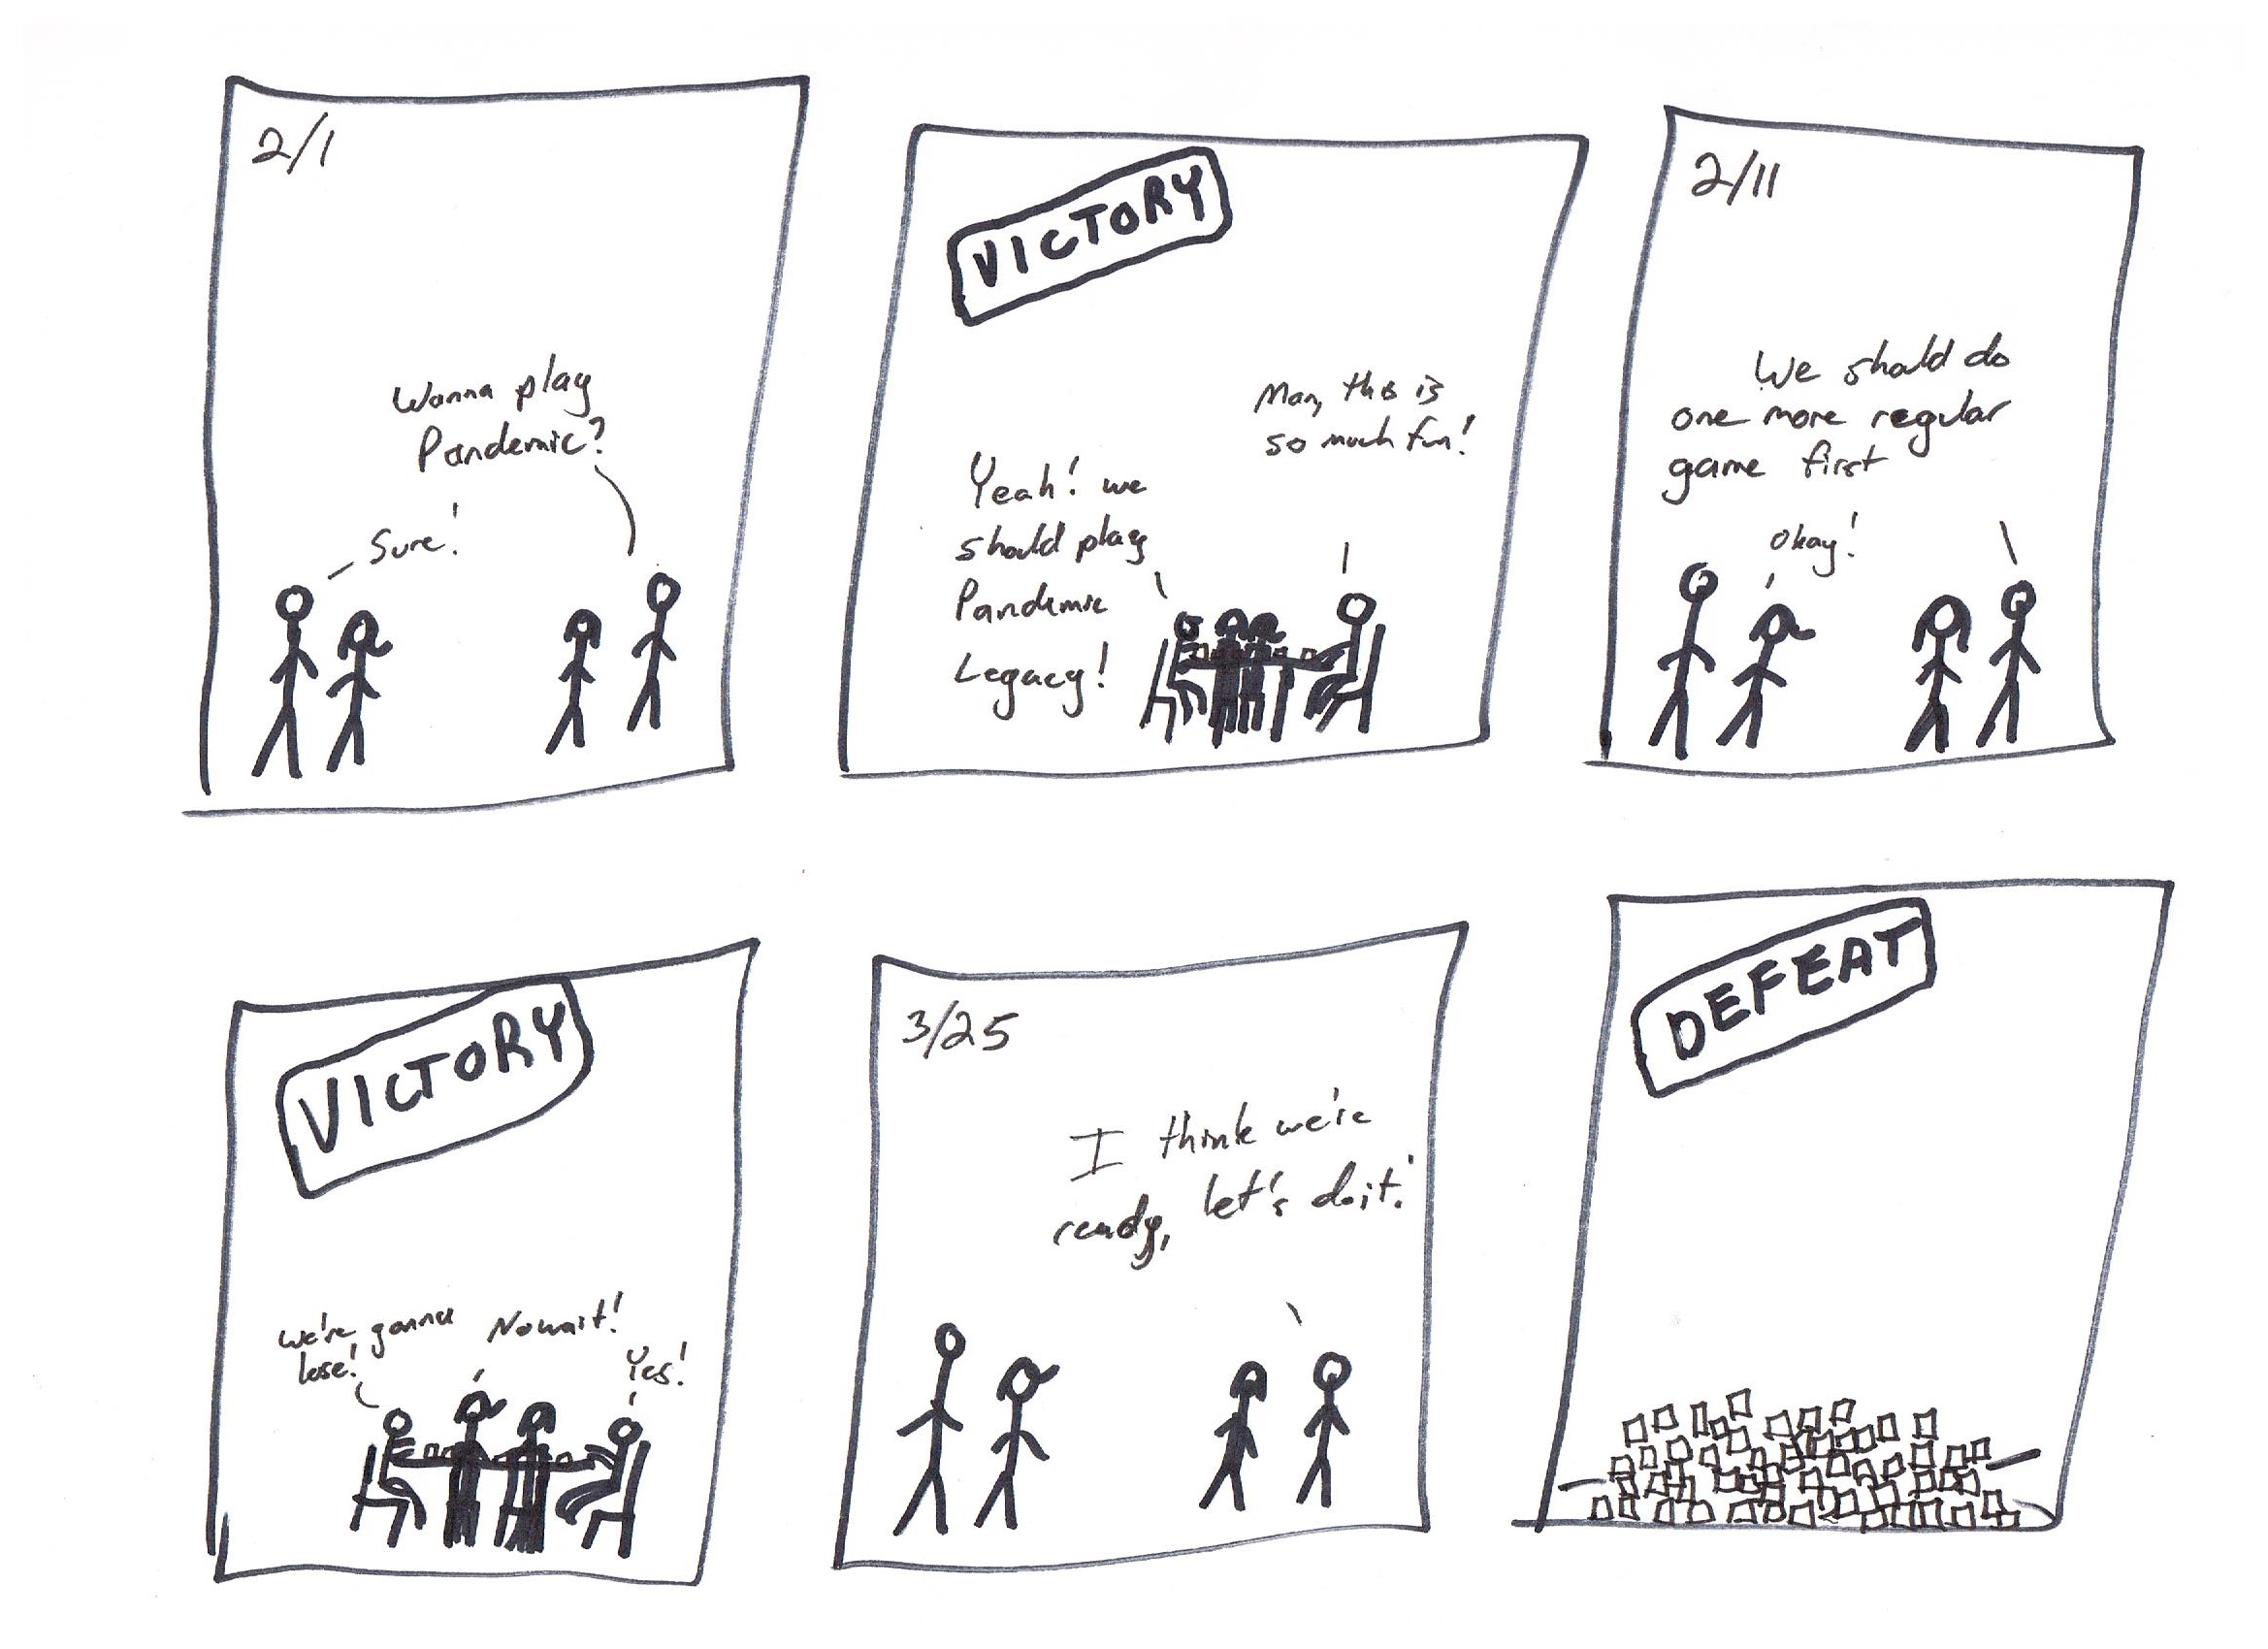 2/1
Wanna play
Pandemic?
Sure!
VICTORY
Man, this is
so much fun!
Yeah! we
should play
Pandemic
Legacy!
2/11
We should do
one more regular
game first
Okay!
VICTORY
We're gonna
lose!
No wait!
Yes!
3/25
I think we're
ready, let's do it!
DEFEAT